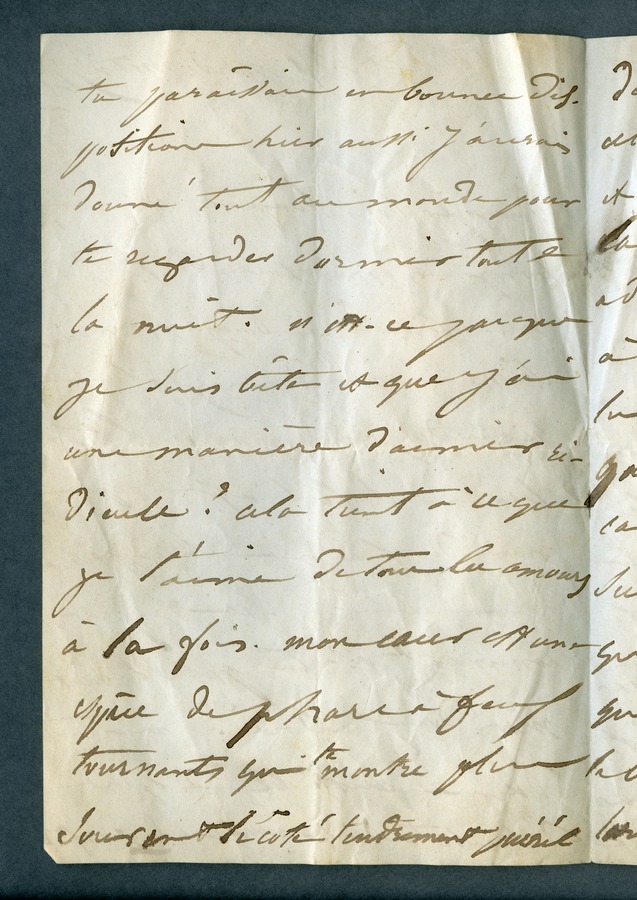 tu paraissais en bonnes dis-
positions hier aussi j'aurais
donné tout au monde pour
te regarder dormir toute
la nuit. n'est-ce pas que
je suis bête et que j'ai
une manière d'aimer ri-
dicule? cela tient à ce que
je t'aime de tous les amours
à la fois. mon cœur est une
espèce de phare à feux
tournants qui te montre plus
souvent le côté tendrement puéril